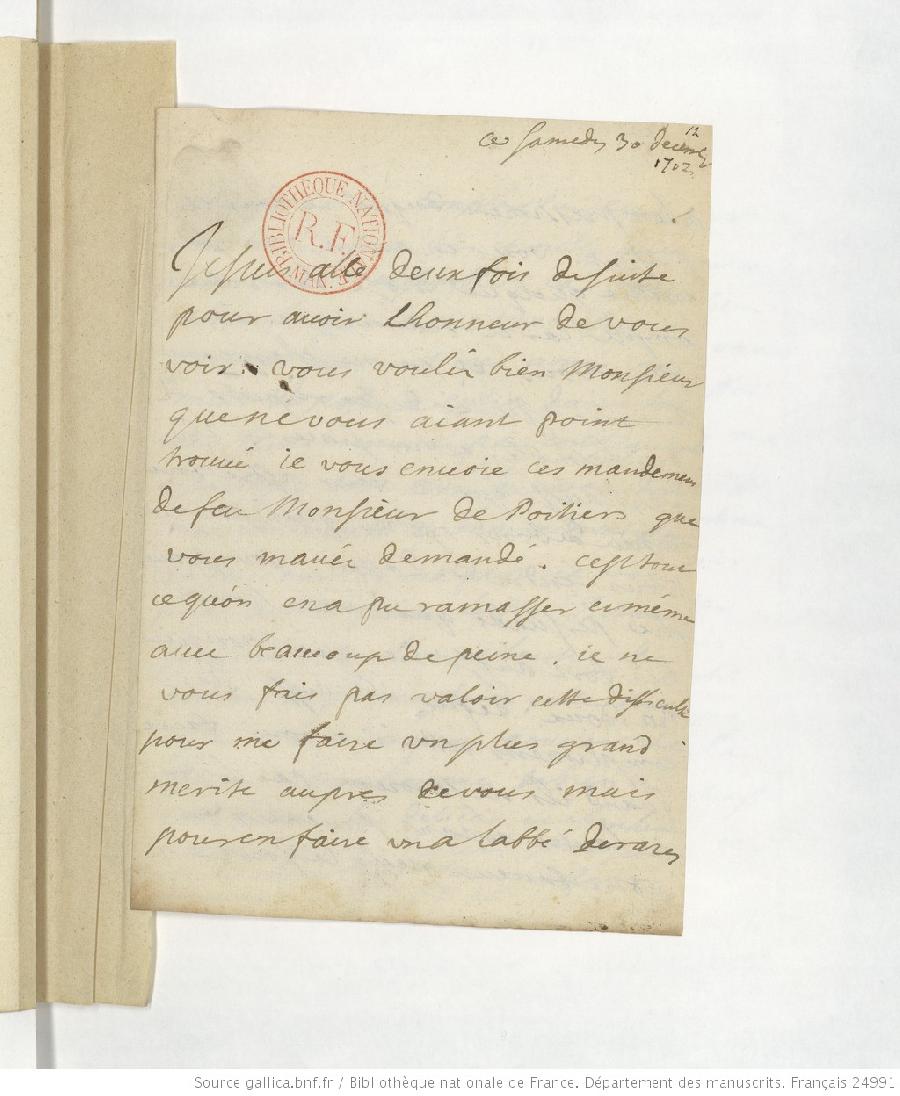 12
ce samedy 30 decemb
1702
BIBLIOTHEQUE NATIONALE MAN.
R.F.
Je suis allé deux fois de suite
pour avoir Lhonneur de vous
voir. vous voulés bien Monsieur
que ne vous aiant point
trouué ie vous enuoie ces mandemens
de feu Monsieur de Poitiers que
vous mauéz demandé. cest tout
ce quon en a pu ramasser et méme
auec beaucoup de peine. ie ne
vous fais pas valoir cette difficulté
pour me faire un plus grand
merite aupres de vous mais
pour en faire un a labbé
Source gallica.bnf.fr / Bibliothèque nationale de France. Département des manuscrits. Français 24991